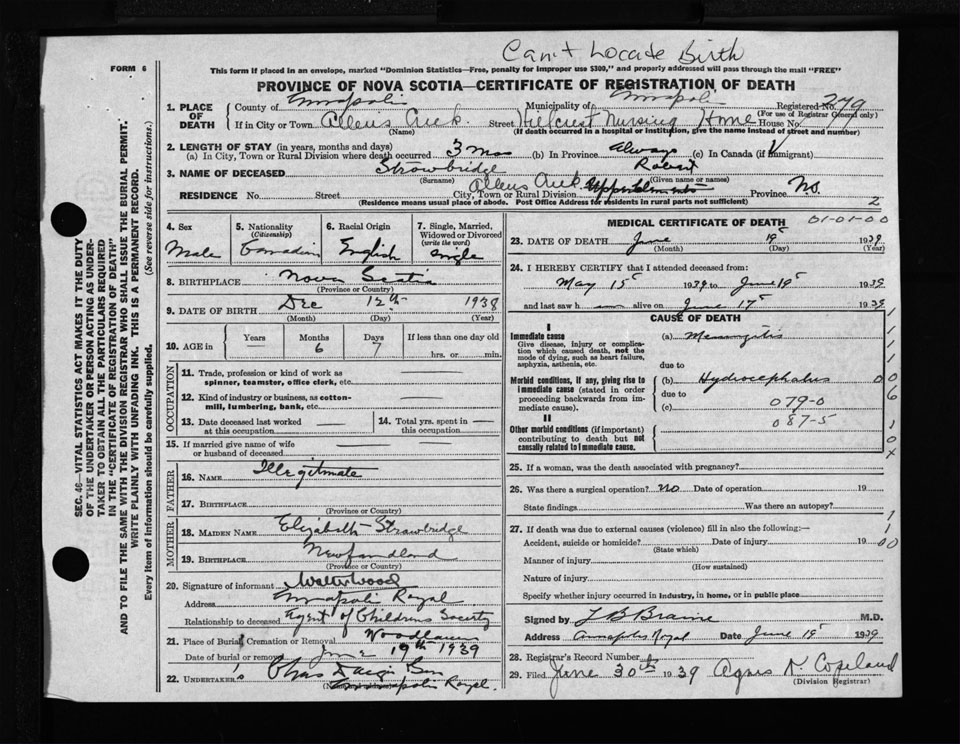 Can't Locate Birth
FORM 6
This form if placed in an envelope, marked "Dominion Statistics—Free, penalty for improper use $300," and properly addressed will pass through the mail "FREE"
PROVINCE OF NOVA SCOTIA—CERTIFICATE OF REGISTRATION OF DEATH
1. PLACE OF DEATH
County of Annapolis Municipality of Annapolis Registered No. 279
(For use of Registrar General only)
If in City or Town Allens Creek Street Hillcrest Nursing Home House No.
(Name) (If death occurred in a hospital or institution, give the name instead of street and number)
2. LENGTH OF STAY (in years, months and days)
(a) In City, Town or Rural Division where death occurred 3 mos (b) In Province Always (c) In Canada (if immigrant)
3. NAME OF DECEASED Strowbridge Robert
(Surname) (Given name or names)
RESIDENCE No. Street City, Town or Rural Division Allens Creek Province N.S.
(Residence means usual place of abode. Post Office Address for residents in rural parts not sufficient) 2
4. Sex
Male
5. Nationality
(Citizenship)
Canadian
6. Racial Origin
English
7. Single, Married, Widowed or Divorced
(write the word)
Single
8. BIRTHPLACE Nova Scotia
(Province or Country)
9. DATE OF BIRTH Dec 12th 1938
(Month) (Day) (Year)
10. AGE in
Years —
Months 6
Days 7
If less than one day old
hrs. or min.
OCCUPATION
11. Trade, profession or kind of work as spinner, teamster, office clerk, etc. —
12. Kind of industry or business, as cotton-mill, lumbering, bank, etc. —
13. Date deceased last worked at this occupation —
14. Total yrs. spent in this occupation —
15. If married give name of wife or husband of deceased —
FATHER
16. NAME Illegitimate
17. BIRTHPLACE
(Province or Country)
MOTHER
18. MAIDEN NAME Elizabeth Strowbridge
19. BIRTHPLACE Newfoundland
(Province or Country)
20. Signature of informant Walter Wood
Address Annapolis Royal
Relationship to deceased Agent of Childrens Society
21. Place of Burial, Cremation or Removal Woodlawn
Date of burial or removal June 19th 1939
22. UNDERTAKER's Chas
Annapolis Royal.
MEDICAL CERTIFICATE OF DEATH 01-01-00
23. DATE OF DEATH June 19 1939
(Month) (Day) (Year)
24. I HEREBY CERTIFY that I attended deceased from:
May 15 1939 to June 19 1939
and last saw h alive on June 17 1939
CAUSE OF DEATH
I
Immediate cause
Give disease, injury or complication which caused death, not the mode of dying, such as heart failure, asphyxia, asthenia, etc.
(a) Meningitis
due to
Morbid conditions, if any, giving rise to immediate cause (stated in order proceeding backwards from immediate cause).
(b) Hydrocephalus
due to
(c) 079-0
087-5
II
Other morbid conditions (if important) contributing to death but not causally related to immediate cause.
25. If a woman, was the death associated with pregnancy?
26. Was there a surgical operation? no Date of operation 19
State findings Was there an autopsy?
27. If death was due to external causes (violence) fill in also the following:—
Accident, suicide or homicide? Date of injury 19
(State which)
Manner of injury
(How sustained)
Nature of injury
Specify whether injury occurred in industry, in home, or in public place
Signed by L B Braine M.D.
Address Annapolis Royal Date June 19 1939
28. Registrar's Record Number
29. Filed June 30th 1939 Agnes N. Copeland
(Division Registrar)
SEC. 46—VITAL STATISTICS ACT MAKES IT THE DUTY
OF THE UNDERTAKER OR PERSON ACTING AS UNDER-
TAKER TO OBTAIN ALL THE PARTICULARS REQUIRED
IN THE "CERTIFICATE OF REGISTRATION OF DEATH"
AND TO FILE THE SAME WITH THE DIVISION REGISTRAR WHO SHALL ISSUE THE BURIAL PERMIT.
WRITE PLAINLY WITH UNFADING INK. THIS IS A PERMANENT RECORD.
Every item of information should be carefully supplied. (See reverse side for instructions.)